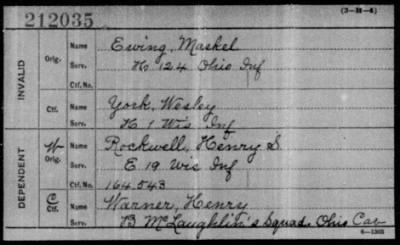 212035 (3-H-4)
INVALID
Orig. Name Ewing, Maskel
Serv. K 124 Ohio Inf
Ctf. No.
Ctf. Name York, Wesley
Serv. H 1 Wis Inf
DEPENDENT
W Orig. Name Rockwell, Henry S
Serv. E 19 Wis Inf
Ctf. No. 164543
C Ctf. Name Warner, Henry
Serv. B McLaughlin's Squad. Ohio Cav